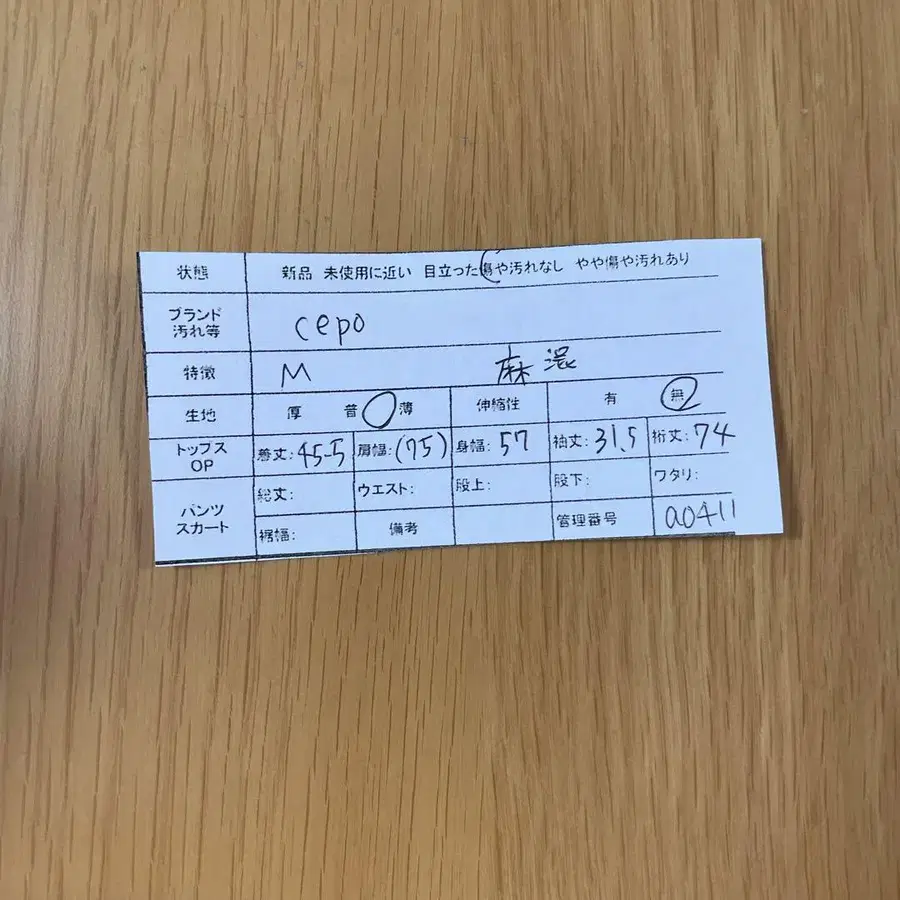 状態 新品 未使用に近い 目立った傷や汚れなし やや傷や汚れあり
ブランド
汚れ等 cepo
特徴 M 麻混
生地 厚 普 薄 伸縮性 有 無
トップス
OP 着丈:45.5 肩幅:(75) 身幅:57 袖丈:31.5 裄丈:74
パンツ
スカート 総丈: ウエスト: 股上: 股下: ワタリ:
裾幅: 備考 管理番号 a0411